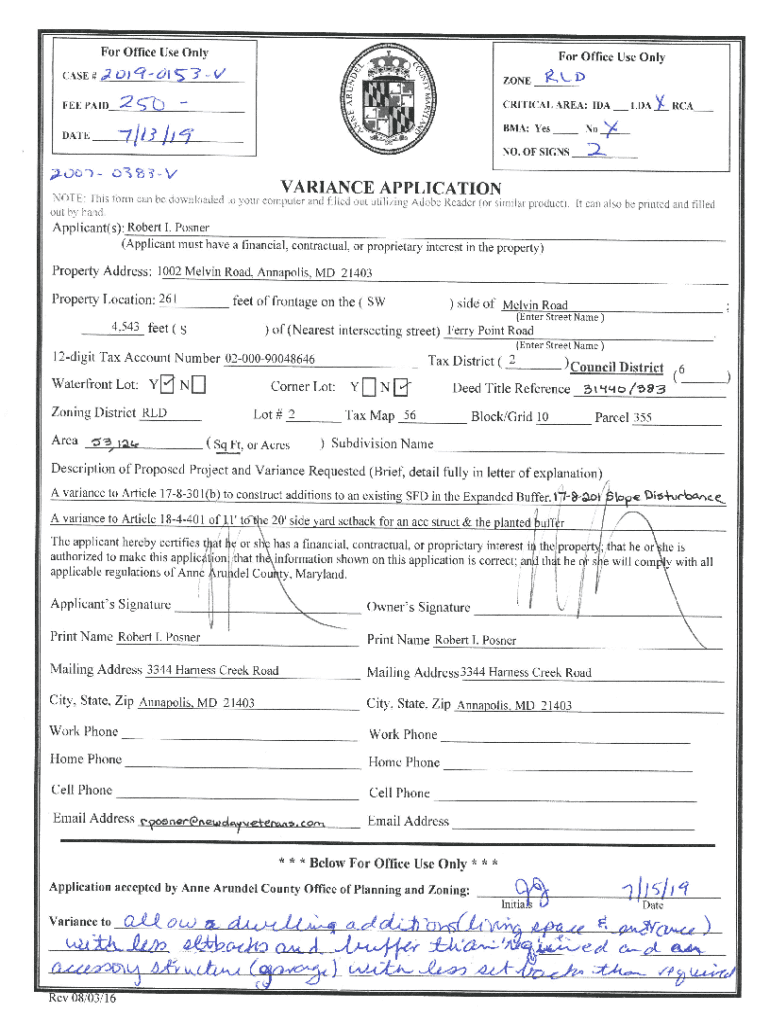 For Office Use Only
CASE # 2019-0153-V
FEE PAID 250 -
DATE 7/13/19
ANNE ARUNDEL COUNTY MARYLAND
For Office Use Only
ZONE RLD
CRITICAL AREA: IDA ___ LDA X RCA ___
BMA: Yes ___ No X
NO. OF SIGNS 2
2007-0383-V
VARIANCE APPLICATION
NOTE: This form can be downloaded to your computer and filled out utilizing Adobe Reader (or similar product). It can also be printed and filled
out by hand.
Applicant(s): Robert I. Posner
(Applicant must have a financial, contractual, or proprietary interest in the property)
Property Address: 1002 Melvin Road, Annapolis, MD 21403
Property Location: 261 feet of frontage on the ( SW ) side of Melvin Road ;
(Enter Street Name )
4,543 feet ( S ) of (Nearest intersecting street) Ferry Point Road
(Enter Street Name )
12-digit Tax Account Number 02-000-90048646 Tax District ( 2 ) Council District ( 6 )
Waterfront Lot: Y ☑ N ☐ Corner Lot: Y ☐ N ☑ Deed Title Reference 31440/383
Zoning District RLD Lot # 2 Tax Map 56 Block/Grid 10 Parcel 355
Area 53,126 ( Sq Ft, or Acres ) Subdivision Name
Description of Proposed Project and Variance Requested (Brief, detail fully in letter of explanation)
A variance to Article 17-8-301(b) to construct additions to an existing SFD in the Expanded Buffer. 17-8-201 Slope Disturbance
A variance to Article 18-4-401 of 11' to the 20' side yard setback for an acc struct & the planted buffer
The applicant hereby certifies that he or she has a financial, contractual, or proprietary interest in the property; that he or she is
authorized to make this application; that the information shown on this application is correct; and that he or she will comply with all
applicable regulations of Anne Arundel County, Maryland.
Applicant's Signature Owner's Signature
Print Name Robert I. Posner Print Name Robert I. Posner
Mailing Address 3344 Harness Creek Road Mailing Address 3344 Harness Creek Road
City, State, Zip Annapolis, MD 21403 City, State, Zip Annapolis, MD 21403
Work Phone Work Phone
Home Phone Home Phone
Cell Phone Cell Phone
Email Address rposner@newdayveterans.com Email Address
* * * Below For Office Use Only * * *
Application accepted by Anne Arundel County Office of Planning and Zoning: JJ 7/15/19
Initials Date
Variance to allow a dwelling additions (living space & entrance)
with less setbacks and buffer than required and an
accessory structure (garage) with less setbacks than required
Rev 08/03/16